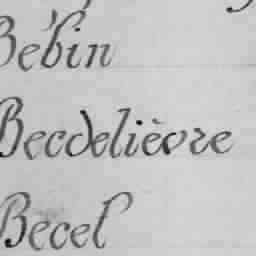 Bébin
Becdelièvre
Becel